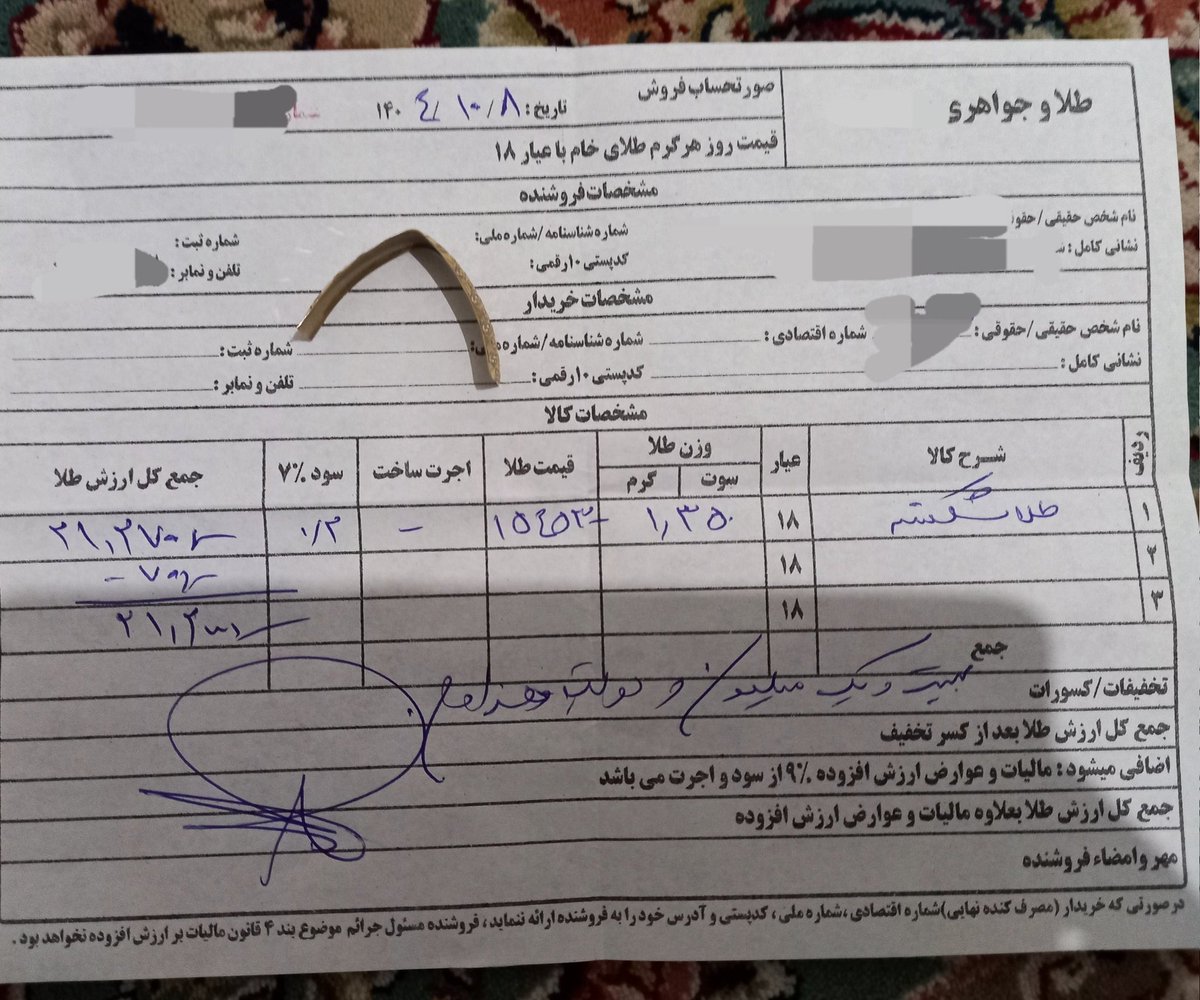 طلا و جواهری
صورتحساب فروش
تاریخ: ۱۴۰۴/۱۰/۸
قیمت روز هرگرم طلای خام با عیار ۱۸
مشخصات فروشنده
نام شخص حقیقی/حقو شماره شناسنامه/شماره ملی: شماره ثبت:
نشانی کامل: کدپستی ۱۰رقمی: تلفن و نمابر:
مشخصات خریدار
نام شخص حقیقی/حقوقی: شماره اقتصادی: شماره شناسنامه/شماره شماره ثبت:
نشانی کامل: کدپستی ۱۰رقمی: تلفن و نمابر:
مشخصات کالا
ردیف شرح کالا عیار وزن طلا سوت گرم قیمت طلا اجرت ساخت سود ۷% جمع کل ارزش طلا
۱ طلا شکسته ۱۸ ۱,۳۵۰ - ۰/۲
۲ ۱۸
۳ ۱۸
جمع
تخفیفات/کسورات بیست و یک میلیون و دویست
جمع کل ارزش طلا بعد از کسر تخفیف
اضافی میشود: مالیات و عوارض ارزش افزوده ۹% از سود و اجرت می باشد
جمع کل ارزش طلا بعلاوه مالیات و عوارض ارزش افزوده
مهر و امضاء فروشنده
درصورتی که خریدار (مصرف کننده نهایی)شماره اقتصادی، شماره ملی، کدپستی و آدرس خود را به فروشنده ارائه ننماید، فروشنده مسئول جرائم موضوع بند ۴ قانون مالیات بر ارزش افزوده نخواهد بود.